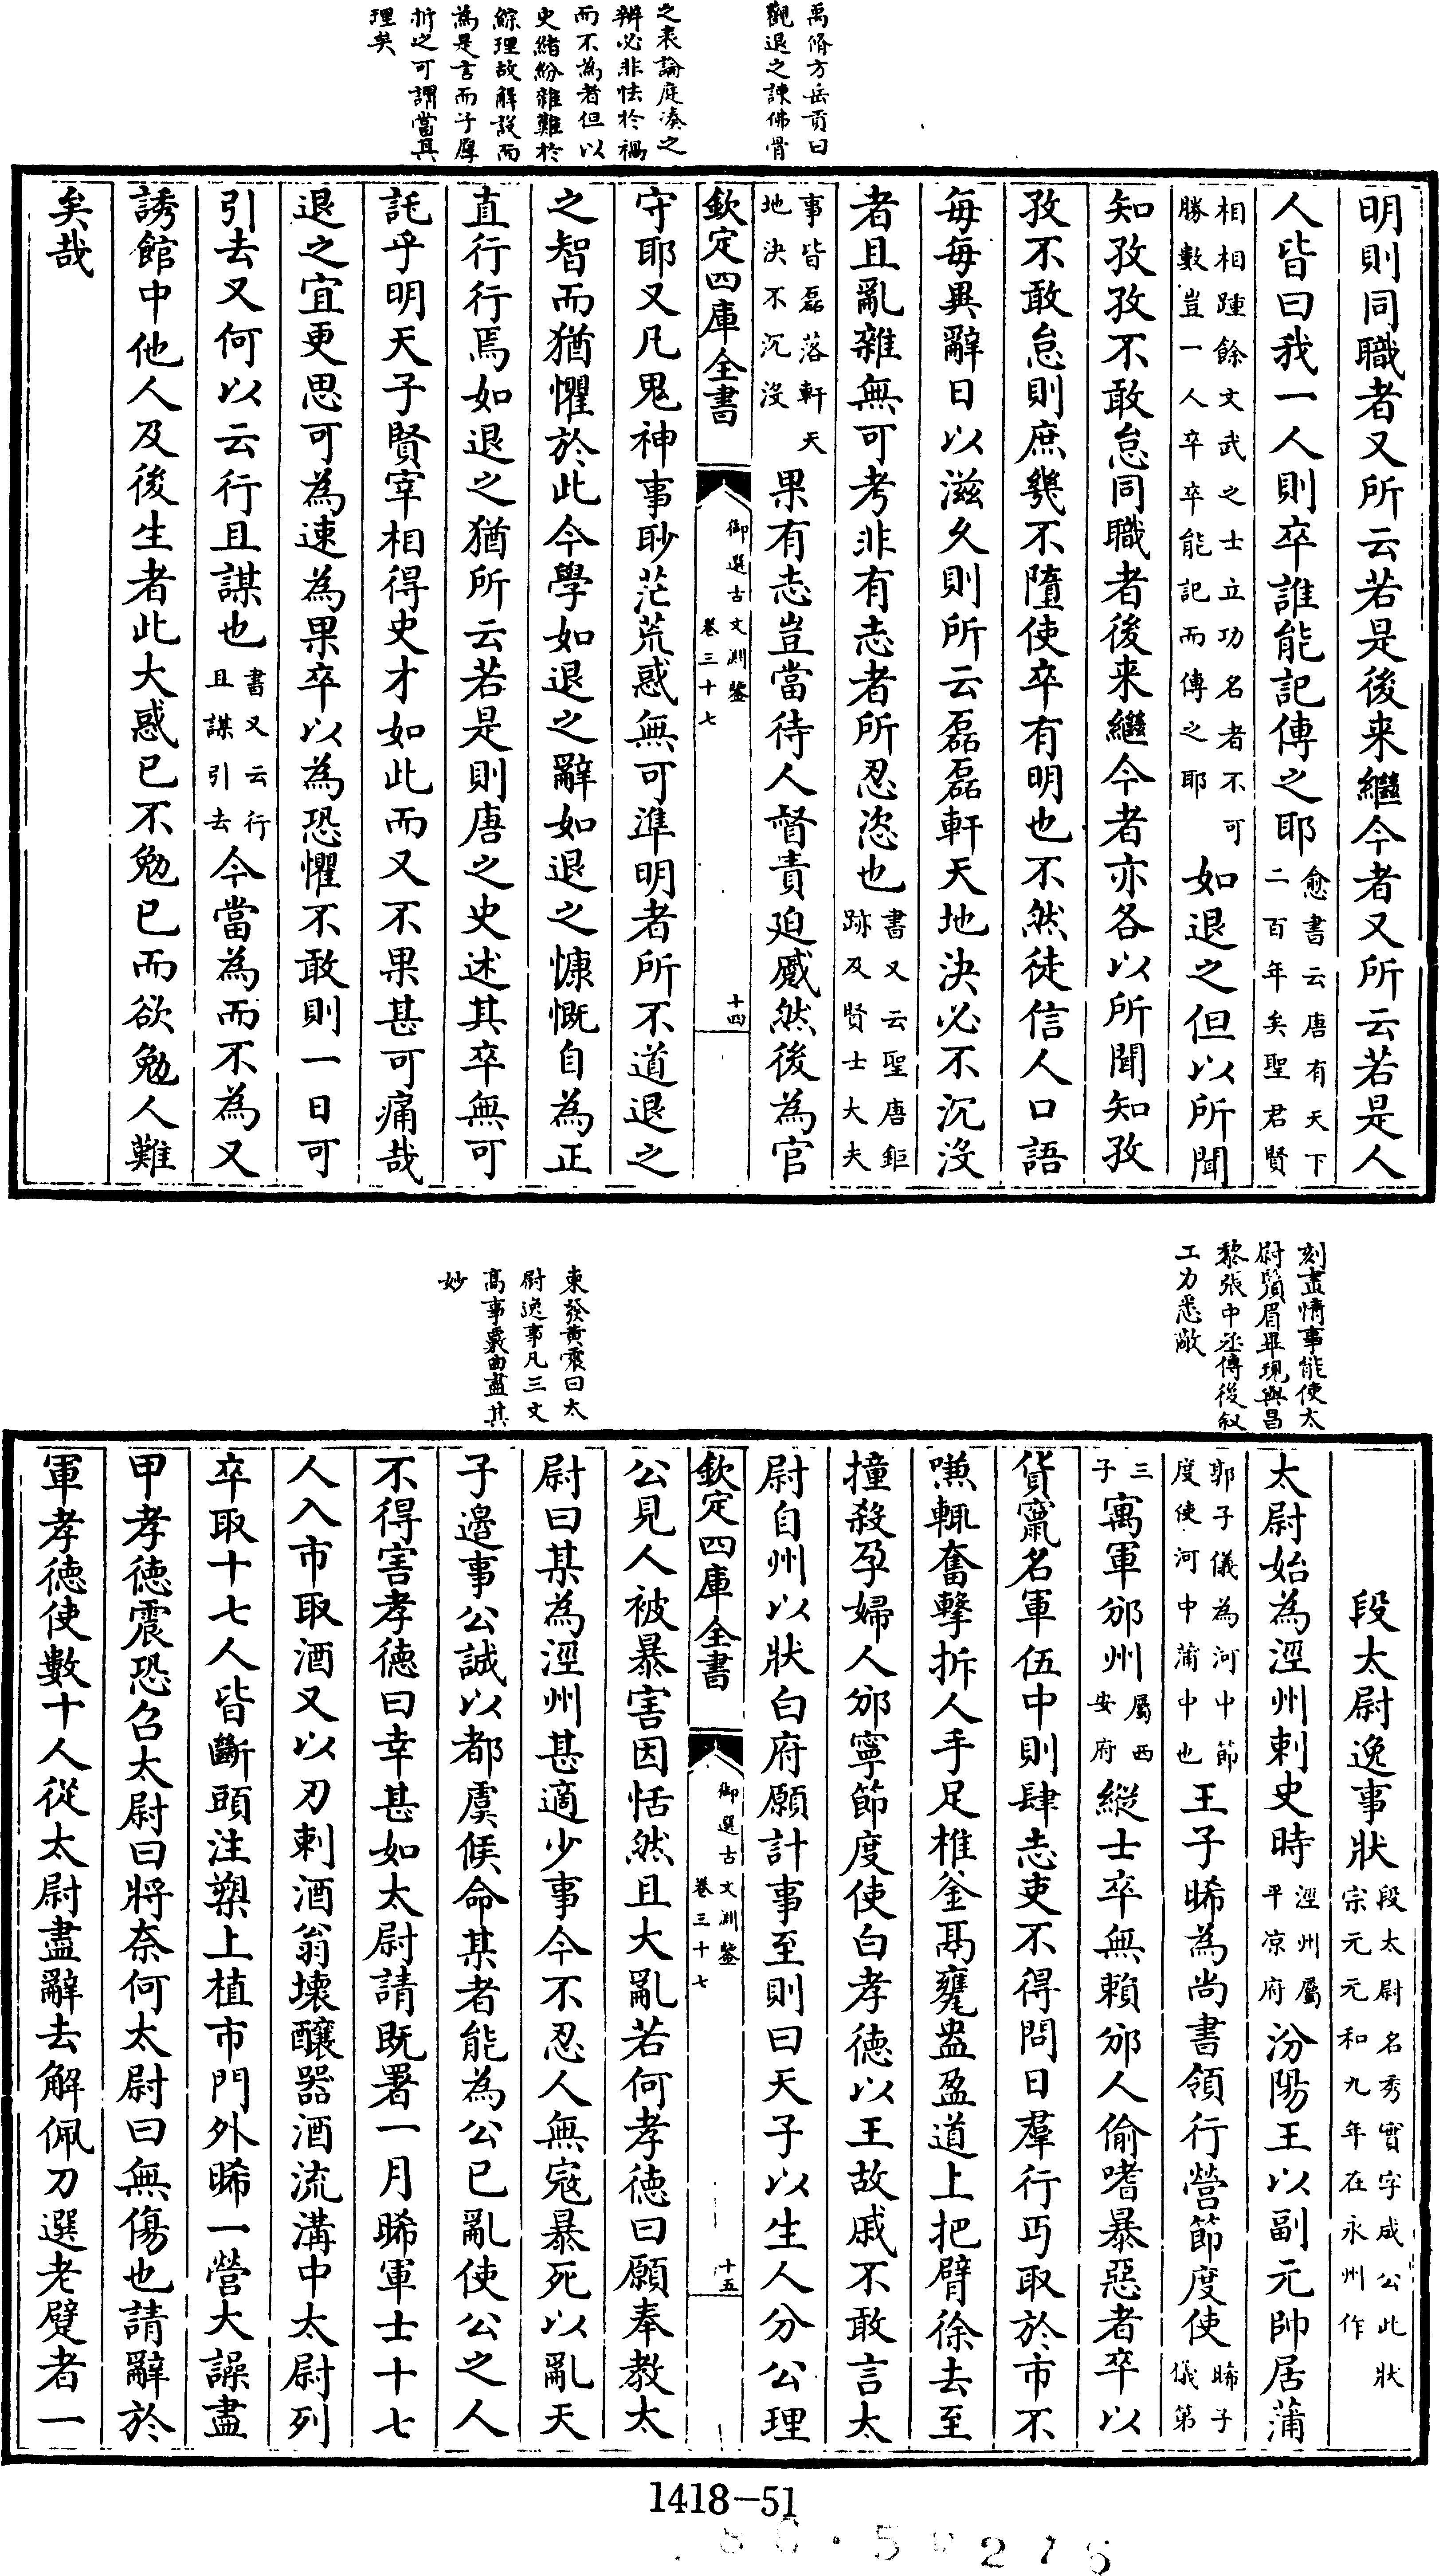 禹脩方岳貢曰
觀退之諫佛骨
之表論庭湊之
辨必非怯於禍
而不為者但以
史緒紛雜難於
綜理故解説而
為是言而子厚
折之可謂當其
理矣
明則同職者又所云若是後来繼今者又所云若是人
人皆曰我一人則卒誰能記傳之耶愈書云唐有天下二百年矣聖君賢
相相踵餘文武之士立功名者不可勝數豈一人卒卒能記而傳之耶如退之但以所聞
知孜孜不敢怠同職者後来繼今者亦各以所聞知孜
孜不敢怠則庶幾不墮使卒有明也不然徒信人口語
每每異辭日以滋久則所云磊磊軒天地決必不沉沒
者且亂雜無可考非有志者所忍恣也書又云聖唐鉅跡及賢士大夫
事皆磊落軒天地決不沉沒果有志豈當待人督責廹蹙然後為官
欽定四庫全書
御選古文淵鑒
卷三十七
十四
守耶又凡鬼神事眇茫荒惑無可準明者所不道退之
之智而猶懼於此今學如退之辭如退之慷慨自為正
直行行焉如退之猶所云若是則唐之史述其卒無可
託乎明天子賢宰相得史才如此而又不果甚可痛哉
退之宜更思可為速為果卒以為恐懼不敢則一日可
引去又何以云行且謀也書又云行且謀引去今當為而不為又
誘館中他人及後生者此大惑已不勉已而欲勉人難
矣哉
刻畫情事能使太
尉鬚眉畢現與昌
黎張中丞傳後叙
工力悉敵
東發黄震曰太
尉逸事凡三文
高事覈曲盡其
妙
段太尉逸事狀段太尉名秀實字成公此狀宗元元和九年在永州作
太尉始為涇州刺史時涇州屬平凉府汾陽王以副元帥居蒲
郭子儀為河中節度使河中蒲中也王子晞為尚書領行營節度使晞子儀第
三子寓軍邠州屬西安府縱士卒無賴邠人偷嗜暴惡者卒以
貨竄名軍伍中則肆志吏不得問日羣行丐取於市不
嗛輒奮擊折人手足椎釜鬲甕盎盈道上把臂徐去至
撞殺孕婦人邠寧節度使白孝徳以王故戚不敢言太
尉自州以狀白府願計事至則曰天子以生人分公理
欽定四庫全書
御選古文淵鑒
卷三十七
十五
公見人被暴害因恬然且大亂若何孝徳曰願奉教太
尉曰某為涇州甚適少事今不忍人無寇暴死以亂天
子邊事公誠以都虞候命某者能為公已亂使公之人
不得害孝徳曰幸甚如太尉請既署一月晞軍士十七
人入市取酒又以刃刺酒翁壊釀器酒流溝中太尉列
卒取十七人皆斷頭注槊上植市門外晞一營大譟盡
甲孝徳震恐召太尉曰將奈何太尉曰無傷也請辭於
軍孝徳使數十人從太尉盡辭去解佩刀選老躄者一
1418-51